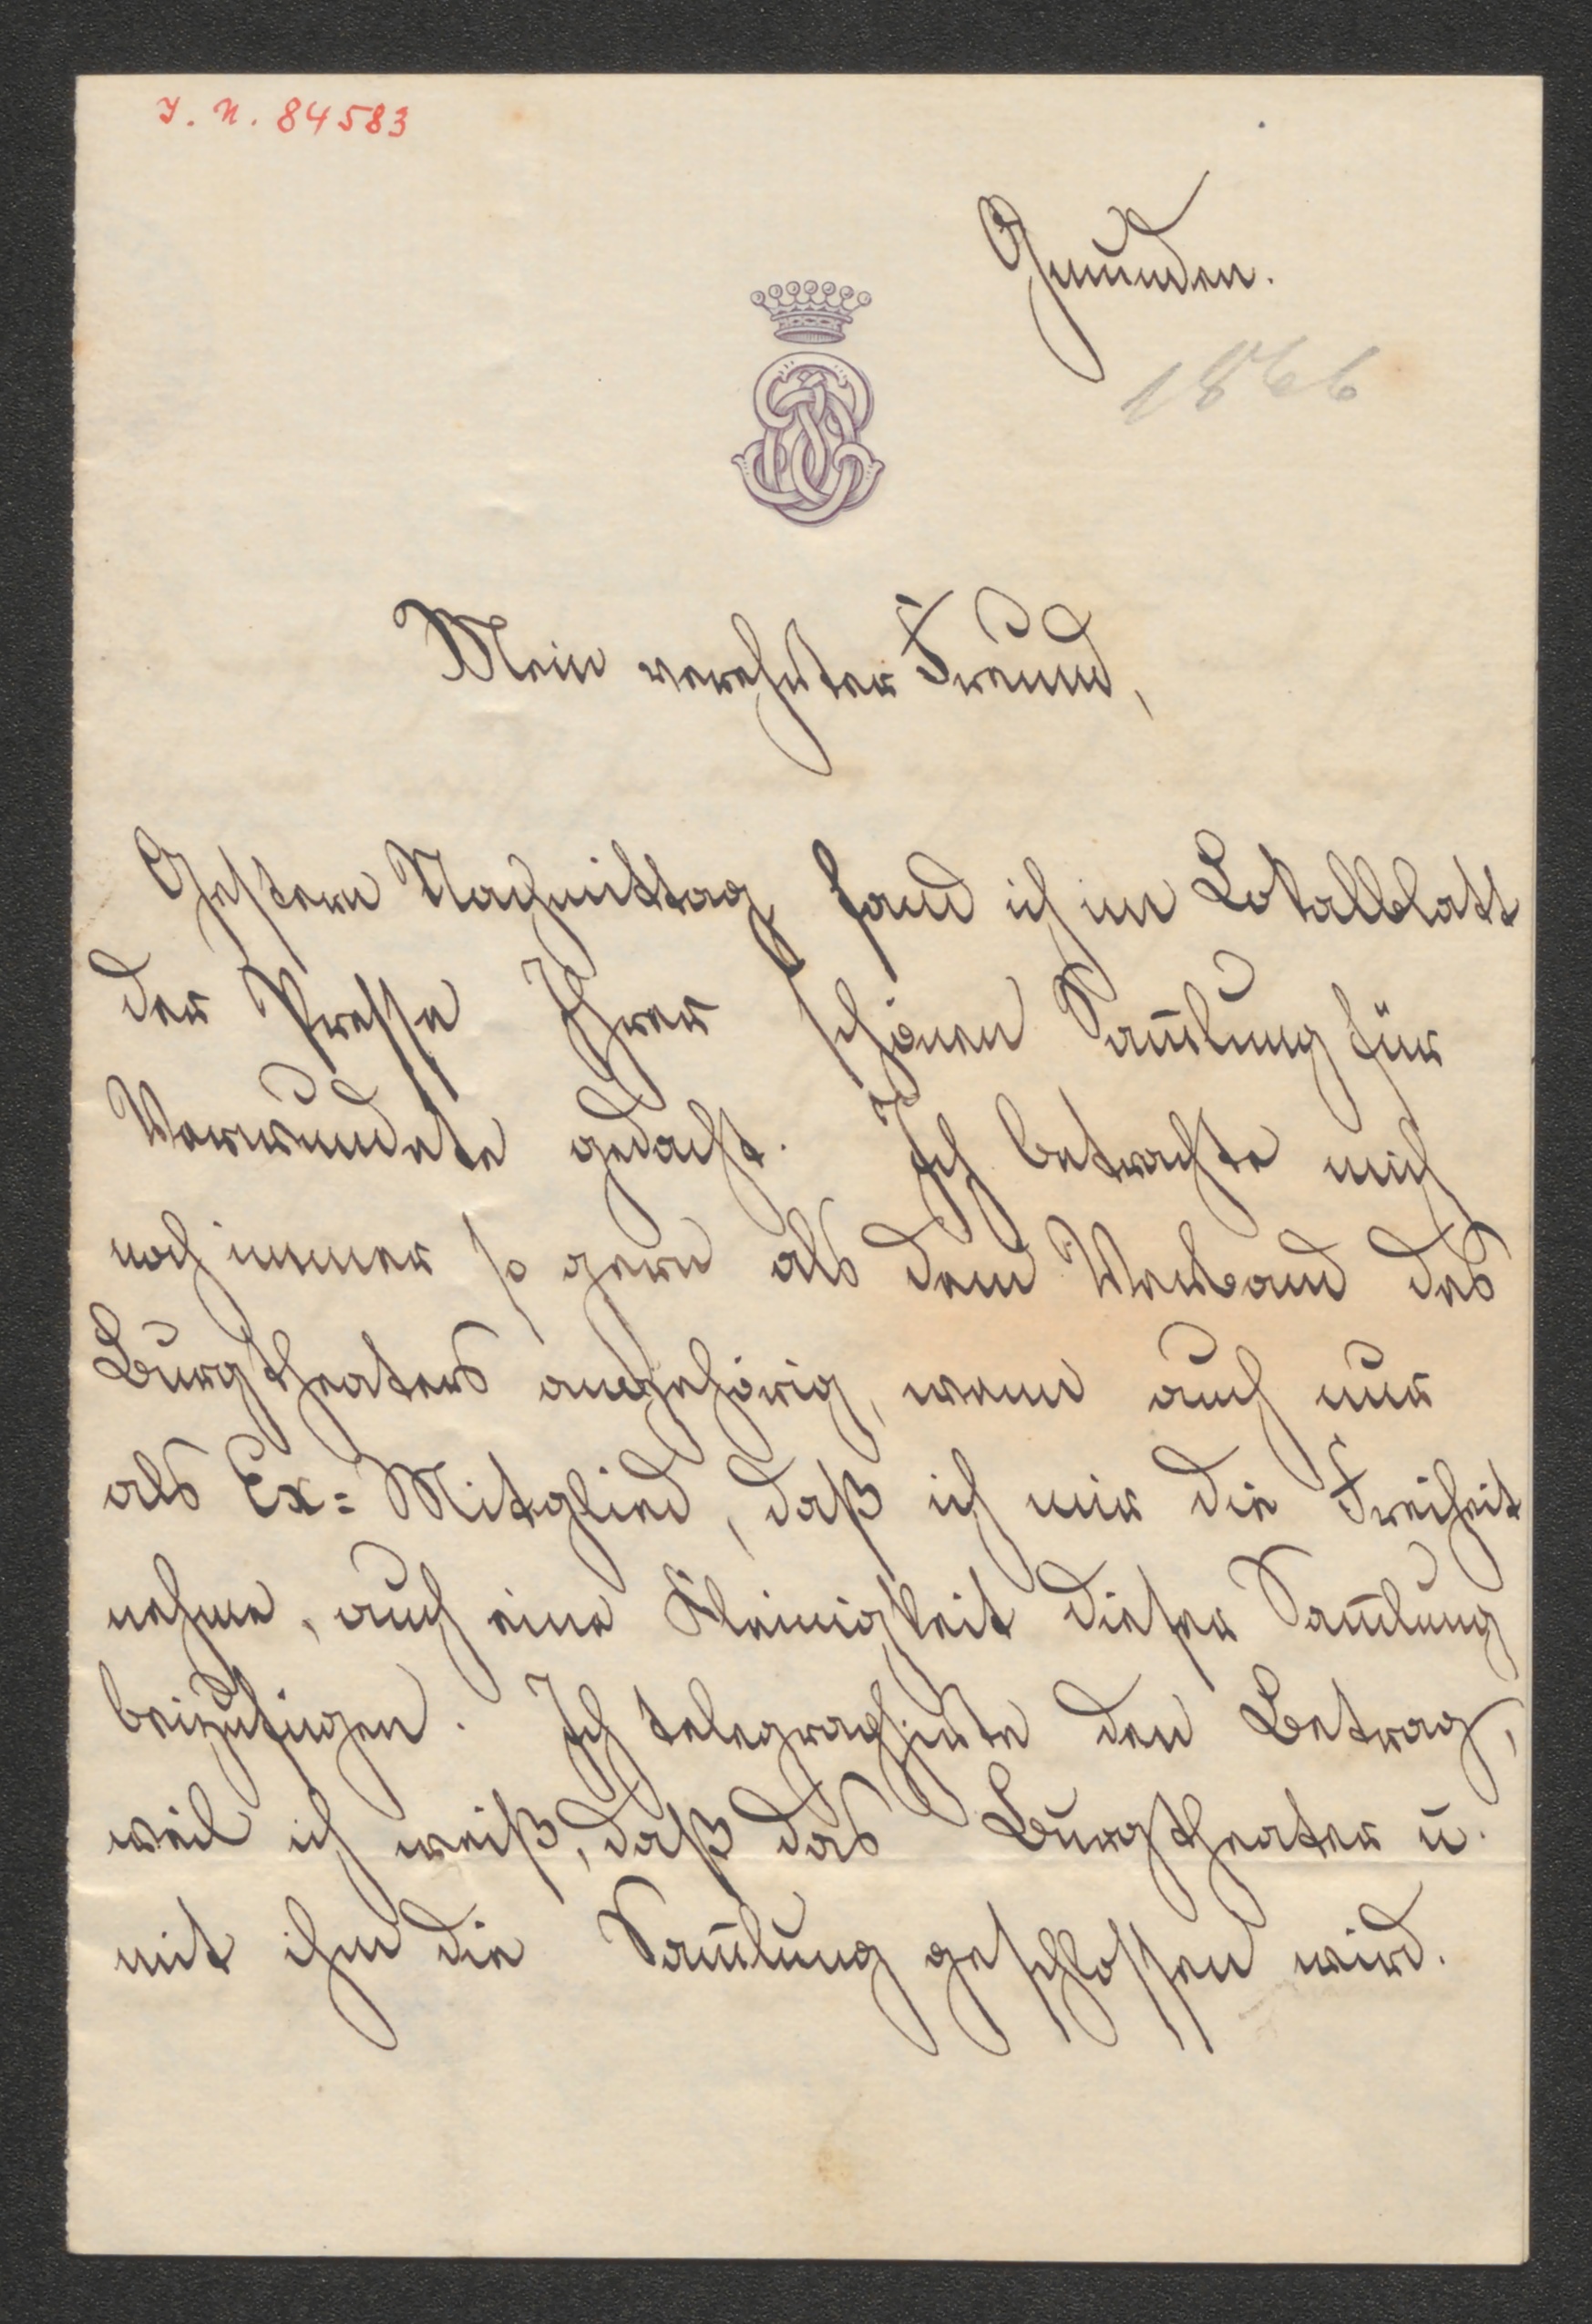 I. N. 84583
Gmunden.
1866
Mein verehrter Freund,
Gestern Nachmittag fand ich im Lokalblatt
der Presse Ihrer schönen Sam̅lung für
Verwundete gedacht. Ich betrachte mich
noch immer so gern als dem Verband des
Burgtheaters angehörig, wenn auch nur
als Ex=Mitglied, daß ich mir die Freiheit
nehme, auch eine Kleinigkeit dieser Sam̅lung
beizufügen. Ich telegraphirte den Betrag,
weil ich weiß, daß das Burgtheater u.
mit ihm die Sam̅lung geschlossen wird.